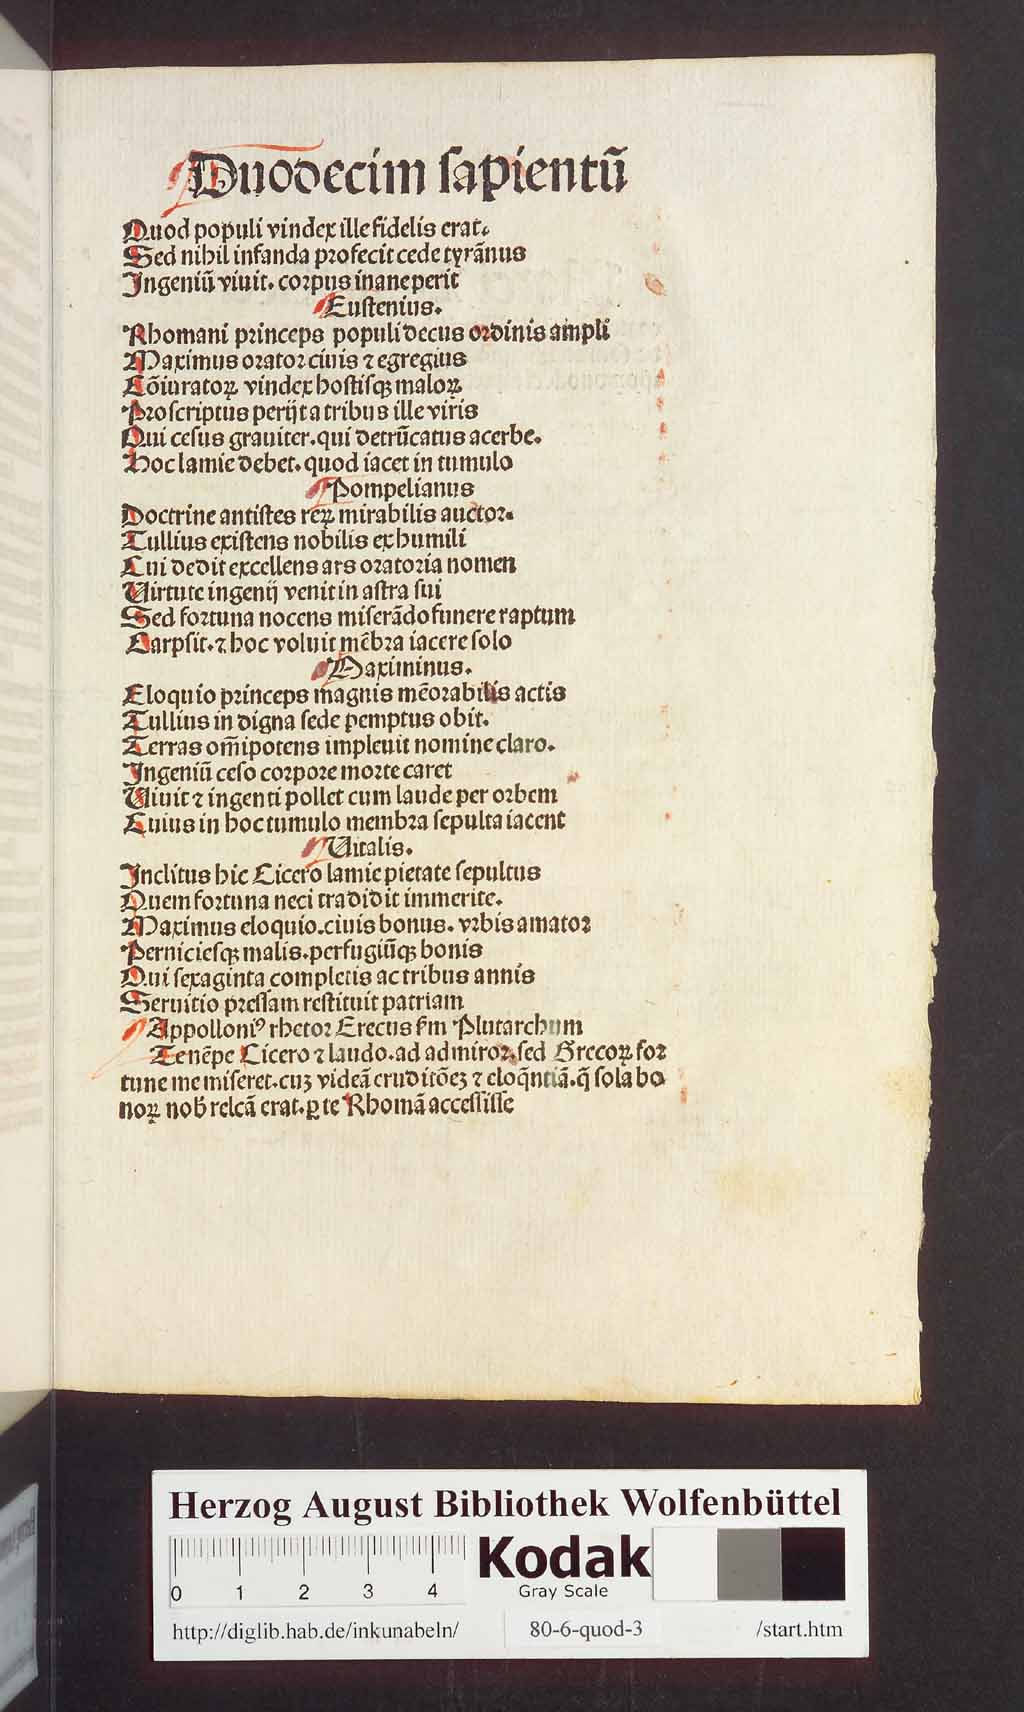 Duodecim ſapientū
Quod populi vindex ille fidelis erat.
Sed nihil infanda profecit cede tyrãnus
Ingeniū viuit. corpus inane perit
Euſtenius.
Rhomani princeps populi decus ordinis ampli
Maximus orator ciuis ⁊ egregius
Cõiuratoꝝ vindex hoſtiſqꝫ maloꝝ
Proſcriptus perijt a tribus ille viris
Qui ceſus grauiter. qui detrũcatus acerbe.
Hoc lamie debet. quod iacet in tumulo
Pompelianus
Doctrine antiſtes reꝝ mirabilis auctor.
Tullius exiſtens nobilis ex humili
Cui dedit excellens ars oratoria nomen
Uirtute ingenij venit in aſtra ſui
Sed fortuna nocens miſerãdo funere raptum
Carpſit. ⁊ hoc voluit mẽbra iacere ſolo
Maximinus.
Eloquio princeps magnis mẽorabilis actis
Tullius in digna ſede ꝑemptus obit.
Terras om̃ipotens impleuit nomine claro.
Ingeniū ceſo corpore morte caret
Uiuit ⁊ ingenti pollet cum laude per orbem
Cuius in hoc tumulo membra ſepulta iacent
Uitalis.
Inclitus hic Cicero lamie pietate ſepultus
Quem fortuna neci tradidit immerite.
Maximus eloquio. ciuis bonus. vrbis amator
Pernicieſqꝫ malis. perfugiũqꝫ bonis
Qui ſexaginta completis ac tribus annis
Seruitio preſſam reſtituit patriam
Appolloniꝰ rhetor Erecus ſm̃ Plutarchum
Te nẽpe Cicero ⁊ laudo. ad admiror. ſed Grecoꝝ for
tune me miſeret. cuꝫ videã eruditõeꝫ ⁊ eloq̃ntiã. q̃ ſola bo
noꝝ nob̃ relcã erat. ꝑ te Rhomã acceſſiſſe
Herzog August Bibliothek Wolfenbüttel
0 1 2 3 4
Kodak
Gray Scale
http://diglib.hab.de/inkunabeln/ 80-6-quod-3 /start.htm